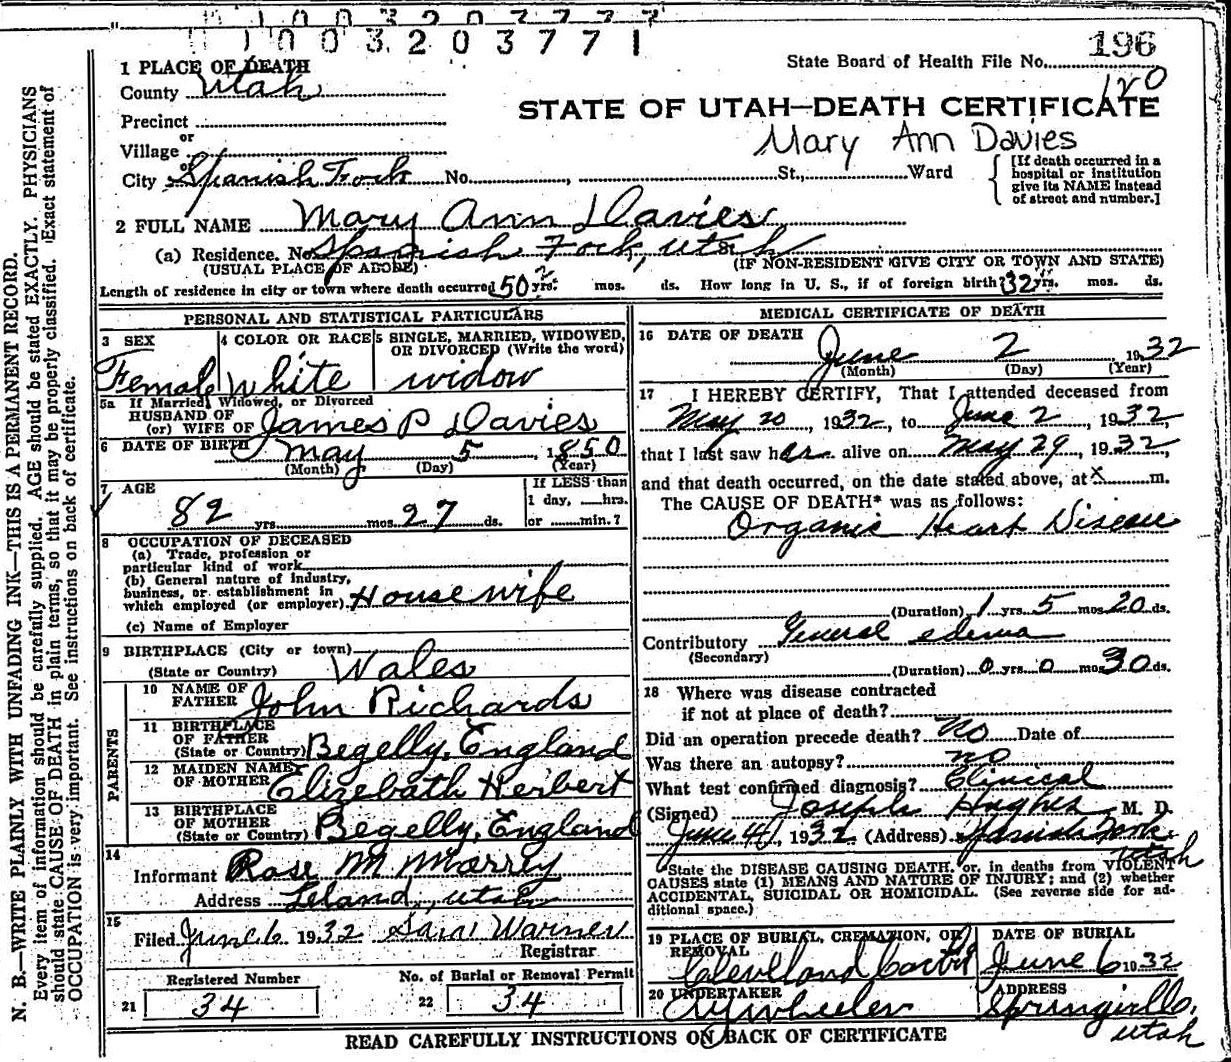 1003203771
196
State Board of Health File No.
120
1 PLACE OF DEATH
County Utah
STATE OF UTAH—DEATH CERTIFICATE
Precinct
or
Village
Mary Ann Davies
or
City Spanish Fork No. , St., Ward
[If death occurred in a hospital or institution give its NAME instead of street and number.]
2 FULL NAME Mary Ann Davies
(a) Residence. No. Spanish Fork, Utah
(USUAL PLACE OF ABODE) (IF NON-RESIDENT GIVE CITY OR TOWN AND STATE)
Length of residence in city or town where death occurred 50 yrs. mos. ds. How long in U. S., if of foreign birth? yrs. mos. ds.
PERSONAL AND STATISTICAL PARTICULARS
3 SEX Female
4 COLOR OR RACE White
5 SINGLE, MARRIED, WIDOWED, OR DIVORCED (Write the word) widow
5a If Married, Widowed, or Divorced
HUSBAND OF
(or) WIFE OF James P Davies
6 DATE OF BIRTH May 5, 1850
(Month) (Day) (Year)
7 AGE 82 yrs. mos. 27 ds.
If LESS than 1 day, hrs. or min.?
8 OCCUPATION OF DECEASED
(a) Trade, profession or particular kind of work
(b) General nature of industry, business, or establishment in which employed (or employer) Housewife
(c) Name of Employer
9 BIRTHPLACE (City or town)
(State or Country) Wales
PARENTS
10 NAME OF FATHER John Richards
11 BIRTHPLACE OF FATHER (State or Country) Begelly, England
12 MAIDEN NAME OF MOTHER Elizebath Herbert
13 BIRTHPLACE OF MOTHER (State or Country) Begelly, England
14 Informant Rose M
Address Leland, Utah
15 Filed June 6 1932 Warner
Registrar
Registered Number
21 34
No. of Burial or Removal Permit
22 34
MEDICAL CERTIFICATE OF DEATH
16 DATE OF DEATH June 2, 1932
(Month) (Day) (Year)
17 I HEREBY CERTIFY, That I attended deceased from
May 20, 1932, to June 2, 1932,
that I last saw her alive on May 29, 1932,
and that death occurred, on the date stated above, at x m.
The CAUSE OF DEATH* was as follows:
Organic Heart Disease
(Duration) 1 yrs. 5 mos. 20 ds.
Contributory General edema
(Secondary)
(Duration) 0 yrs. 0 mos. 30 ds.
18 Where was disease contracted
if not at place of death?
Did an operation precede death? No Date of
Was there an autopsy? no
What test confirmed diagnosis? Clinical
(Signed) Joseph Hughes M. D.
June 4, 1932 (Address) Spanish Fork
Utah
*State the DISEASE CAUSING DEATH, or, in deaths from VIOLENT
CAUSES state (1) MEANS AND NATURE OF INJURY; and (2) whether
ACCIDENTAL, SUICIDAL OR HOMICIDAL. (See reverse side for ad-
ditional space.)
19 PLACE OF BURIAL, CREMATION, OR REMOVAL
DATE OF BURIAL
June 6 1932
20 UNDERTAKER Wheeler
ADDRESS
Springville,
Utah
READ CAREFULLY INSTRUCTIONS ON BACK OF CERTIFICATE
N. B.—WRITE PLAINLY WITH UNFADING INK—THIS IS A PERMANENT RECORD.
Every item of information should be carefully supplied. AGE should be stated EXACTLY. PHYSICIANS
should state CAUSE OF DEATH in plain terms, so that it may be properly classified. Exact statement of
OCCUPATION is very important. See instructions on back of certificate.